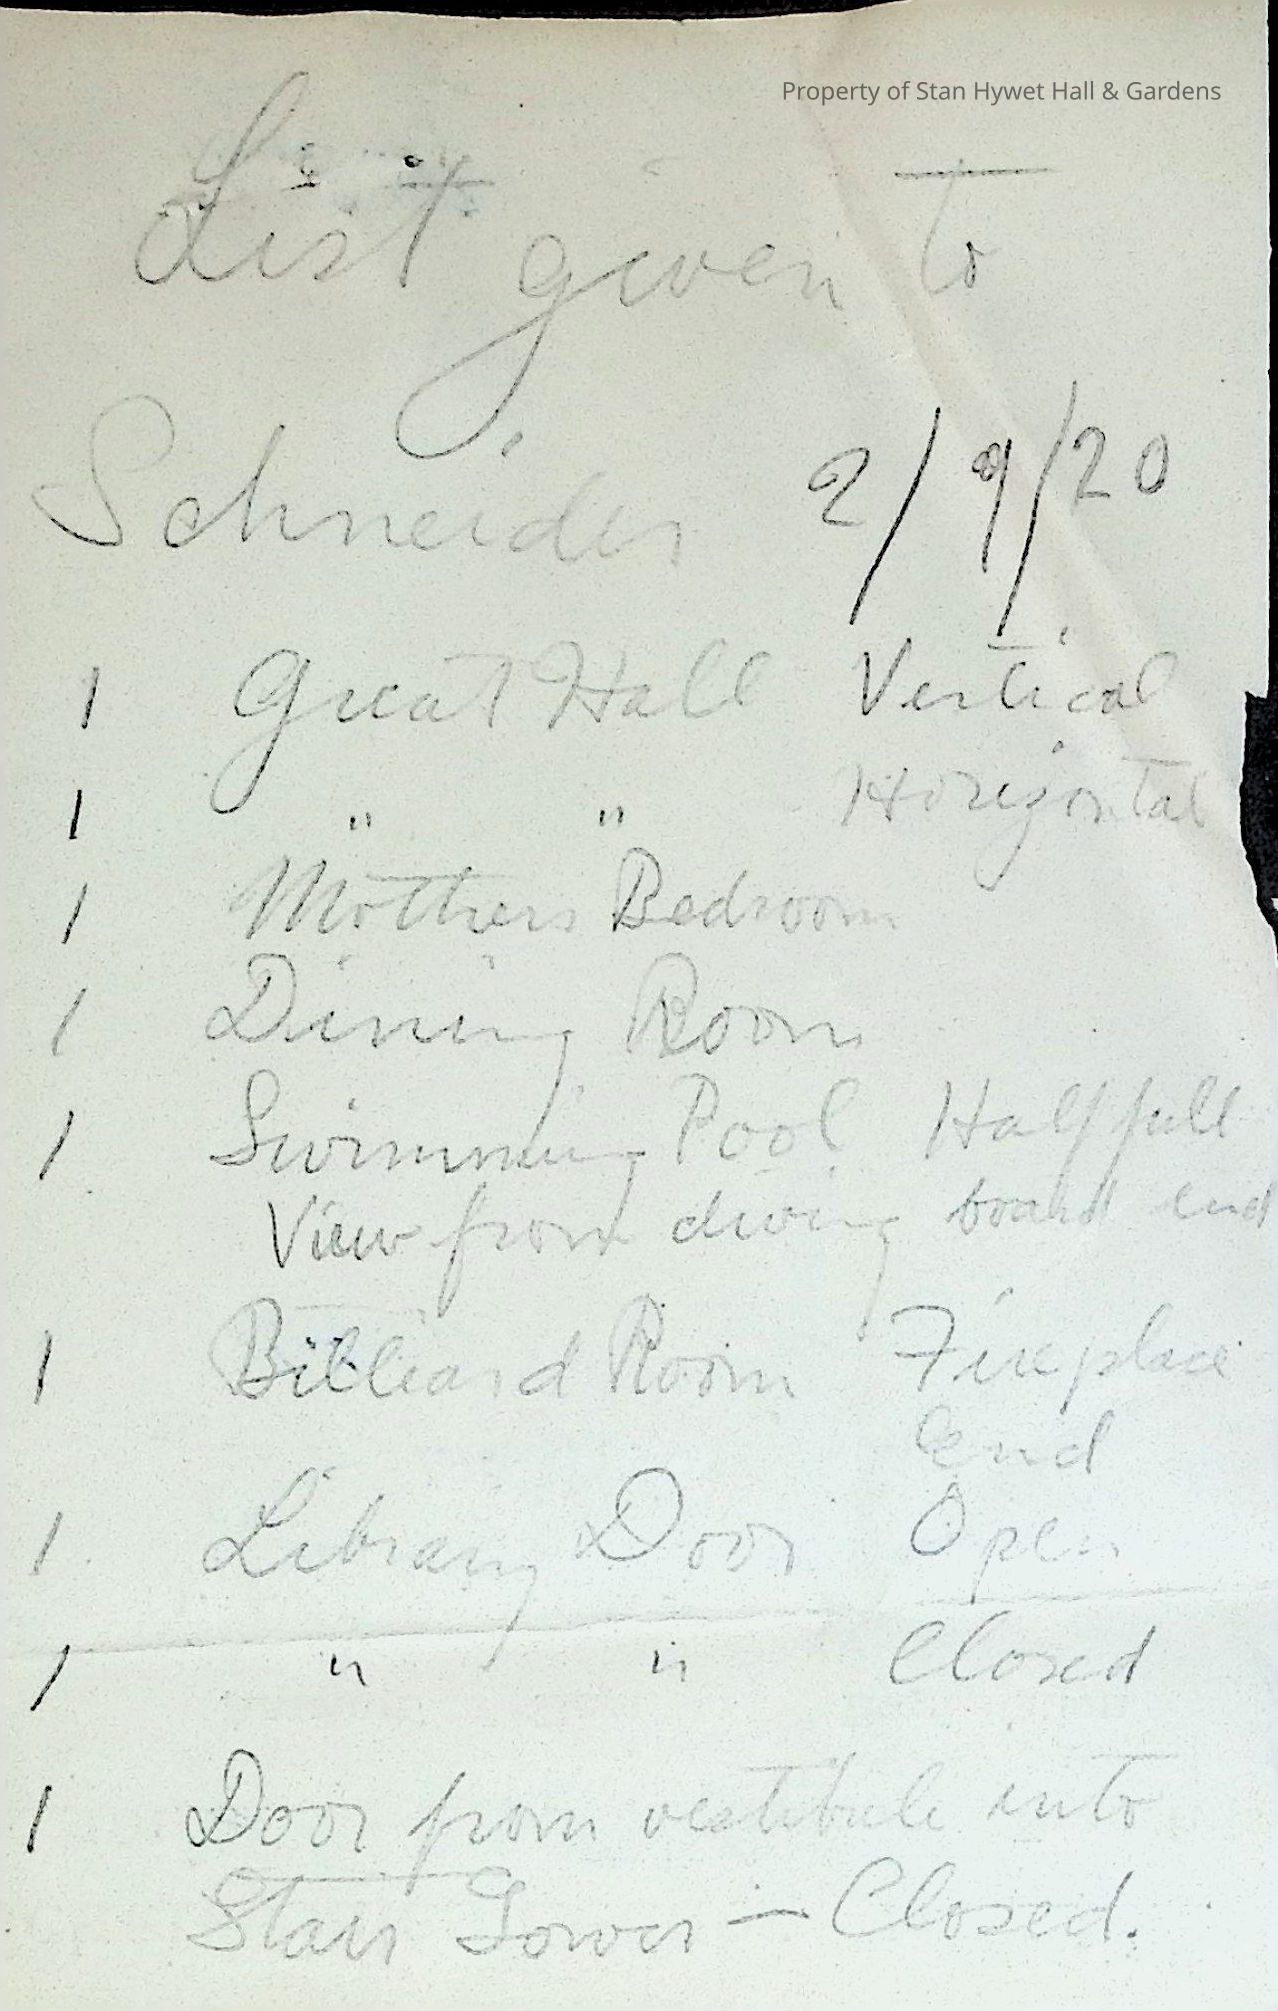 Property of Stan Hywet Hall & Gardens
List given to
Schneider 2/9/20
1 Great Hall Vertical
1 " " Horizontal
1 Mothers Bedroom
1 Dining Room
1 Swimming Pool Half full
View from diving board end
1 Billiard Room Fireplace
end
1 Library Door Open
1 " " Closed
1 Door from vestibule into
Stair Tower — Closed.